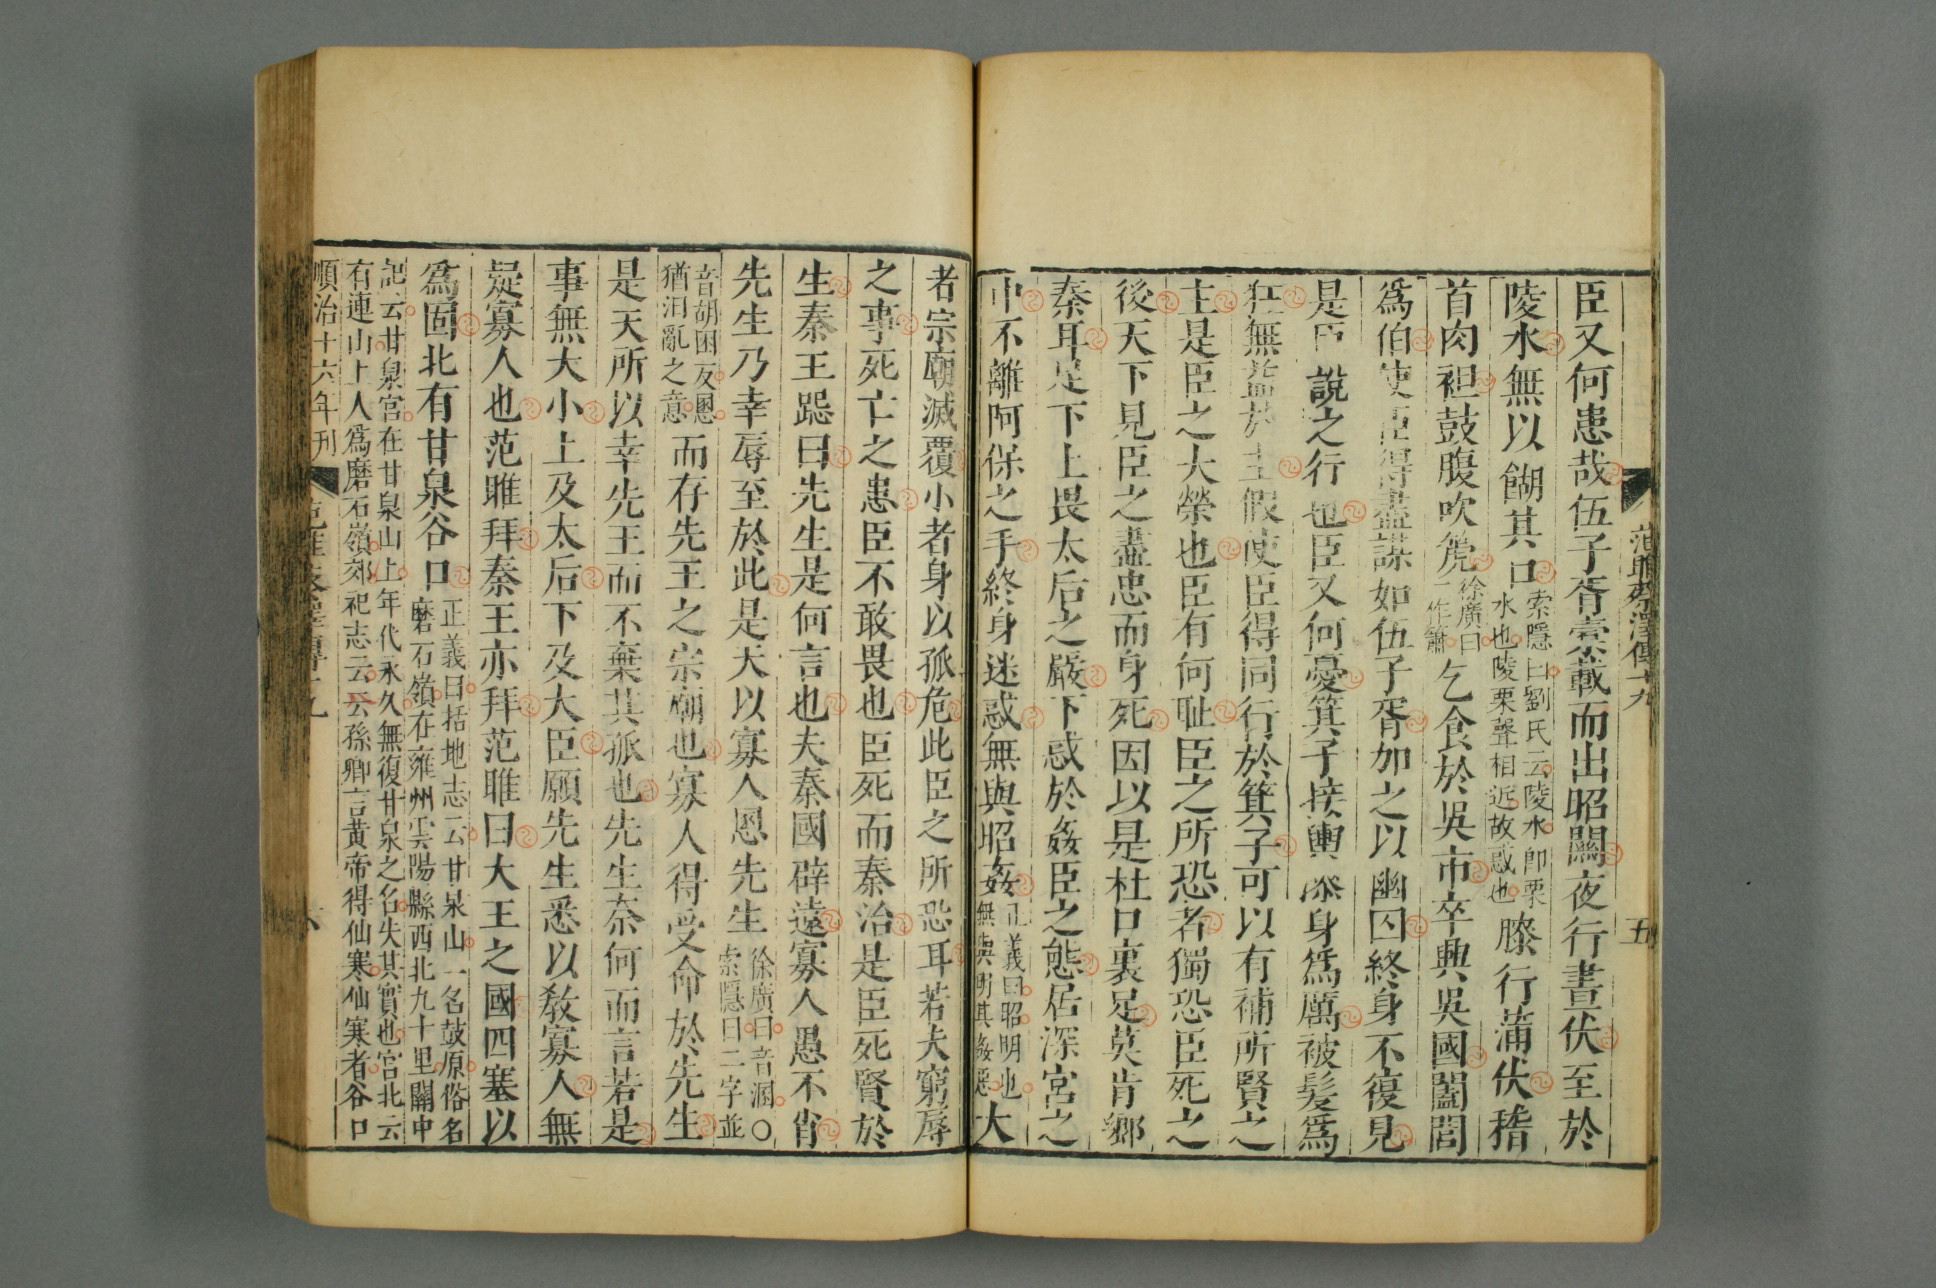 范雎蔡澤傳十九
五
臣又何患哉伍子胥橐載而出昭關夜行晝伏至於
陵水無以餬其口
索隱曰劉氏云陵水卽栗
水也陵栗聲相近故惑也
膝行蒲伏稽
首肉袒鼓腹吹篪
徐廣曰
一作簫
乞食於吳市卒興吳國闔閭
爲伯使臣得盡謀如伍子胥加之以幽囚終身不復見
是臣說之行也臣又何憂箕子接輿漆身爲厲被髮爲
狂無益於主假使臣得同行於箕子可以有補所賢之
主是臣之大榮也臣有何恥臣之所恐者獨恐臣死之
後天下見臣之盡忠而身死因以是杜口裹足莫肯鄉
秦耳足下上畏太后之嚴下惑於姦臣之態居深宮之
中不離阿保之手終身迷惑無與昭姦
正義曰昭明也
無與明其姦惡
大
者宗廟滅覆小者身以孤危此臣之所恐耳若夫窮辱
之事死亡之患臣不敢畏也臣死而秦治是臣死賢於
生秦王跽曰先生是何言也夫秦國辟遠寡人愚不肖
先生乃幸辱至於此是天以寡人慁先生
徐廣曰音溷〇
索隱曰二字並
音胡困反慁
猶汨亂之意
而存先王之宗廟也寡人得受命於先生
是天所以幸先王而不棄其孤也先生奈何而言若是
事無大小上及太后下及大臣願先生悉以敎寡人無
疑寡人也范雎拜秦王亦拜范雎曰大王之國四塞以
爲固北有甘泉谷口
正義曰括地志云甘泉山一名鼓原俗名
磨石嶺在雍州雲陽縣西北九十里關中
記云甘泉宮在甘泉山上年代永久無復甘泉之名失其實也宮北云
有連山土人爲磨石嶺郊祀志云云孫卿言黃帝得仙寒仙寒者谷口
順治十六年刊
六